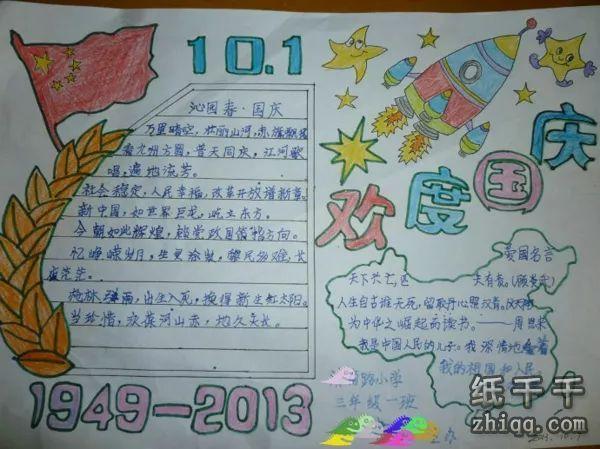 10.1
沁园春·国庆
万里晴空，壮丽山河，赤旗飘摇
看九州方圆，普天同庆，江河歌
唱，遍地流芳。
社会稳定，人民幸福，改革开放谱新章。
新中国，如世界巨龙，屹立东方。
今朝如此辉煌，赖党政国俯指方向。
忆峥嵘岁月，生灵涂炭，黎民
茫茫。
枪林弹雨，出生入死，换得新生红太阳。
当珍惜，欢葆河山赤，地久天长。
1949-2013
欢度国庆
爱国名言
天下兴亡匹夫有责。(顾炎武)
人生自古谁无死，留取丹心照汗青。
为中华之崛起而读书。——周恩来
我是中国人民的儿子。我深情地爱着
我的祖国和人民。
路小学
三年级一班
主办
2013.10.1
纸千千
zhiqq.com